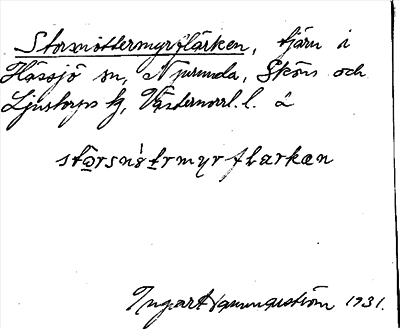 Storsnöttermyrflärken, tjärn i
Hässjö sn, Njurunda, Sköns och
Ljustorps tg, Västernorrl. l. å
storsnötrmyrflarkæn
Ingvart 1931.